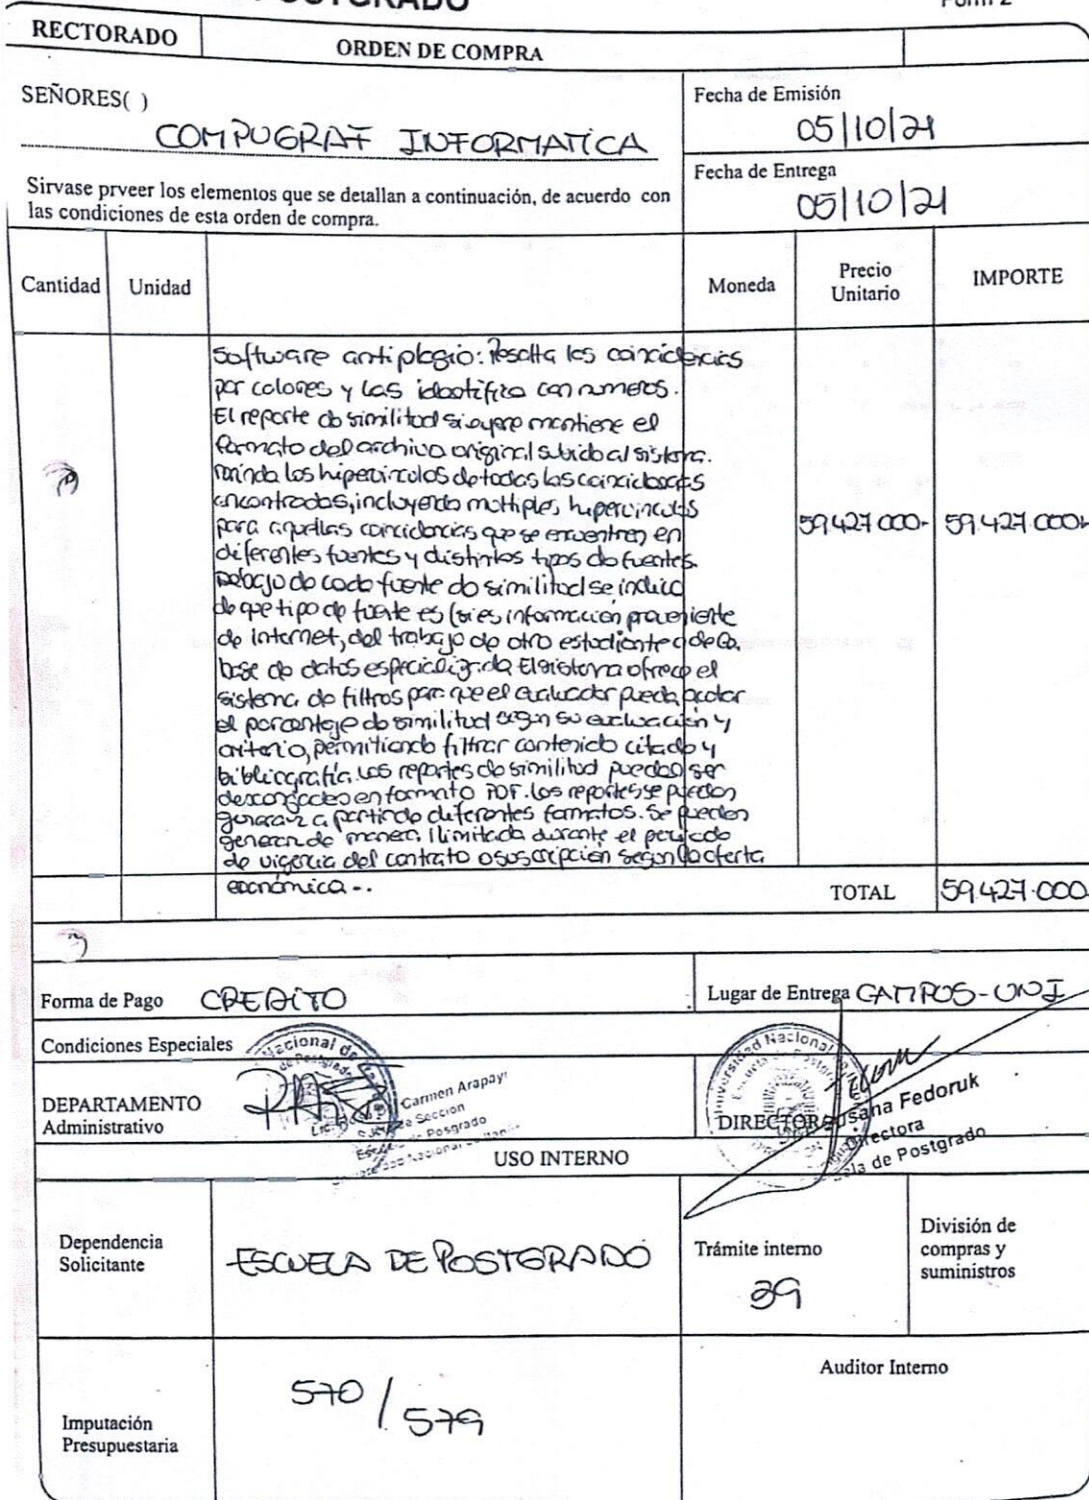 POSTGRADO
Form 2
RECTORADO
ORDEN DE COMPRA
SEÑORES( )
COMPUGRAF INFORMATICA
Fecha de Emisión
05/10/21
Fecha de Entrega
05/10/21
Sirvase prveer los elementos que se detallan a continuación, de acuerdo con
las condiciones de esta orden de compra.
Cantidad Unidad Moneda Precio Unitario IMPORTE
Software antiplagio: Resalta las coincidencias
por colores y las identifica con numeros.
El reporte de similitud siempre mantiene el
formato del archivo original subido al sistema.
Brinda los hipervinculos de todas las coincidencias
encontradas, incluyendo multiples hipervinculos
para aquellas coincidencias que se encuentren en
diferentes fuentes y distintos tipos de fuentes.
59.427.000- 59.427.000-
Debajo de cada fuente de similitud se indica
de que tipo de fuente es (si es información proveniente
de internet, del trabajo de otro estudiante o de la
base de datos especializada. El sistema ofrece el
sistema de filtros para que el evaluador pueda
el porcentaje de similitud según su evaluación y
criterio, permitiendo filtrar contenido citado y
bibliografía. Los reportes de similitud pueden ser
descargados en formato PDF. Los reportes se pueden
generar a partir de diferentes formatos. Se pueden
generar de manera ilimitada durante el periodo
de vigencia del contrato o suscripción según la oferta
económica-.
TOTAL 59.427.000
Forma de Pago CREDITO
Lugar de Entrega CAMPUS-UNI
Condiciones Especiales
DEPARTAMENTO
Administrativo
Nacional de
Carmen Arapayú
Sección
Postgrado
Universidad Nacional
DIRECTOR
Susana Fedoruk
Directora
Escuela de Postgrado
USO INTERNO
Dependencia
Solicitante
ESCUELA DE POSTGRADO
Trámite interno
39
División de
compras y
suministros
Imputación
Presupuestaria
570 / 579
Auditor Interno